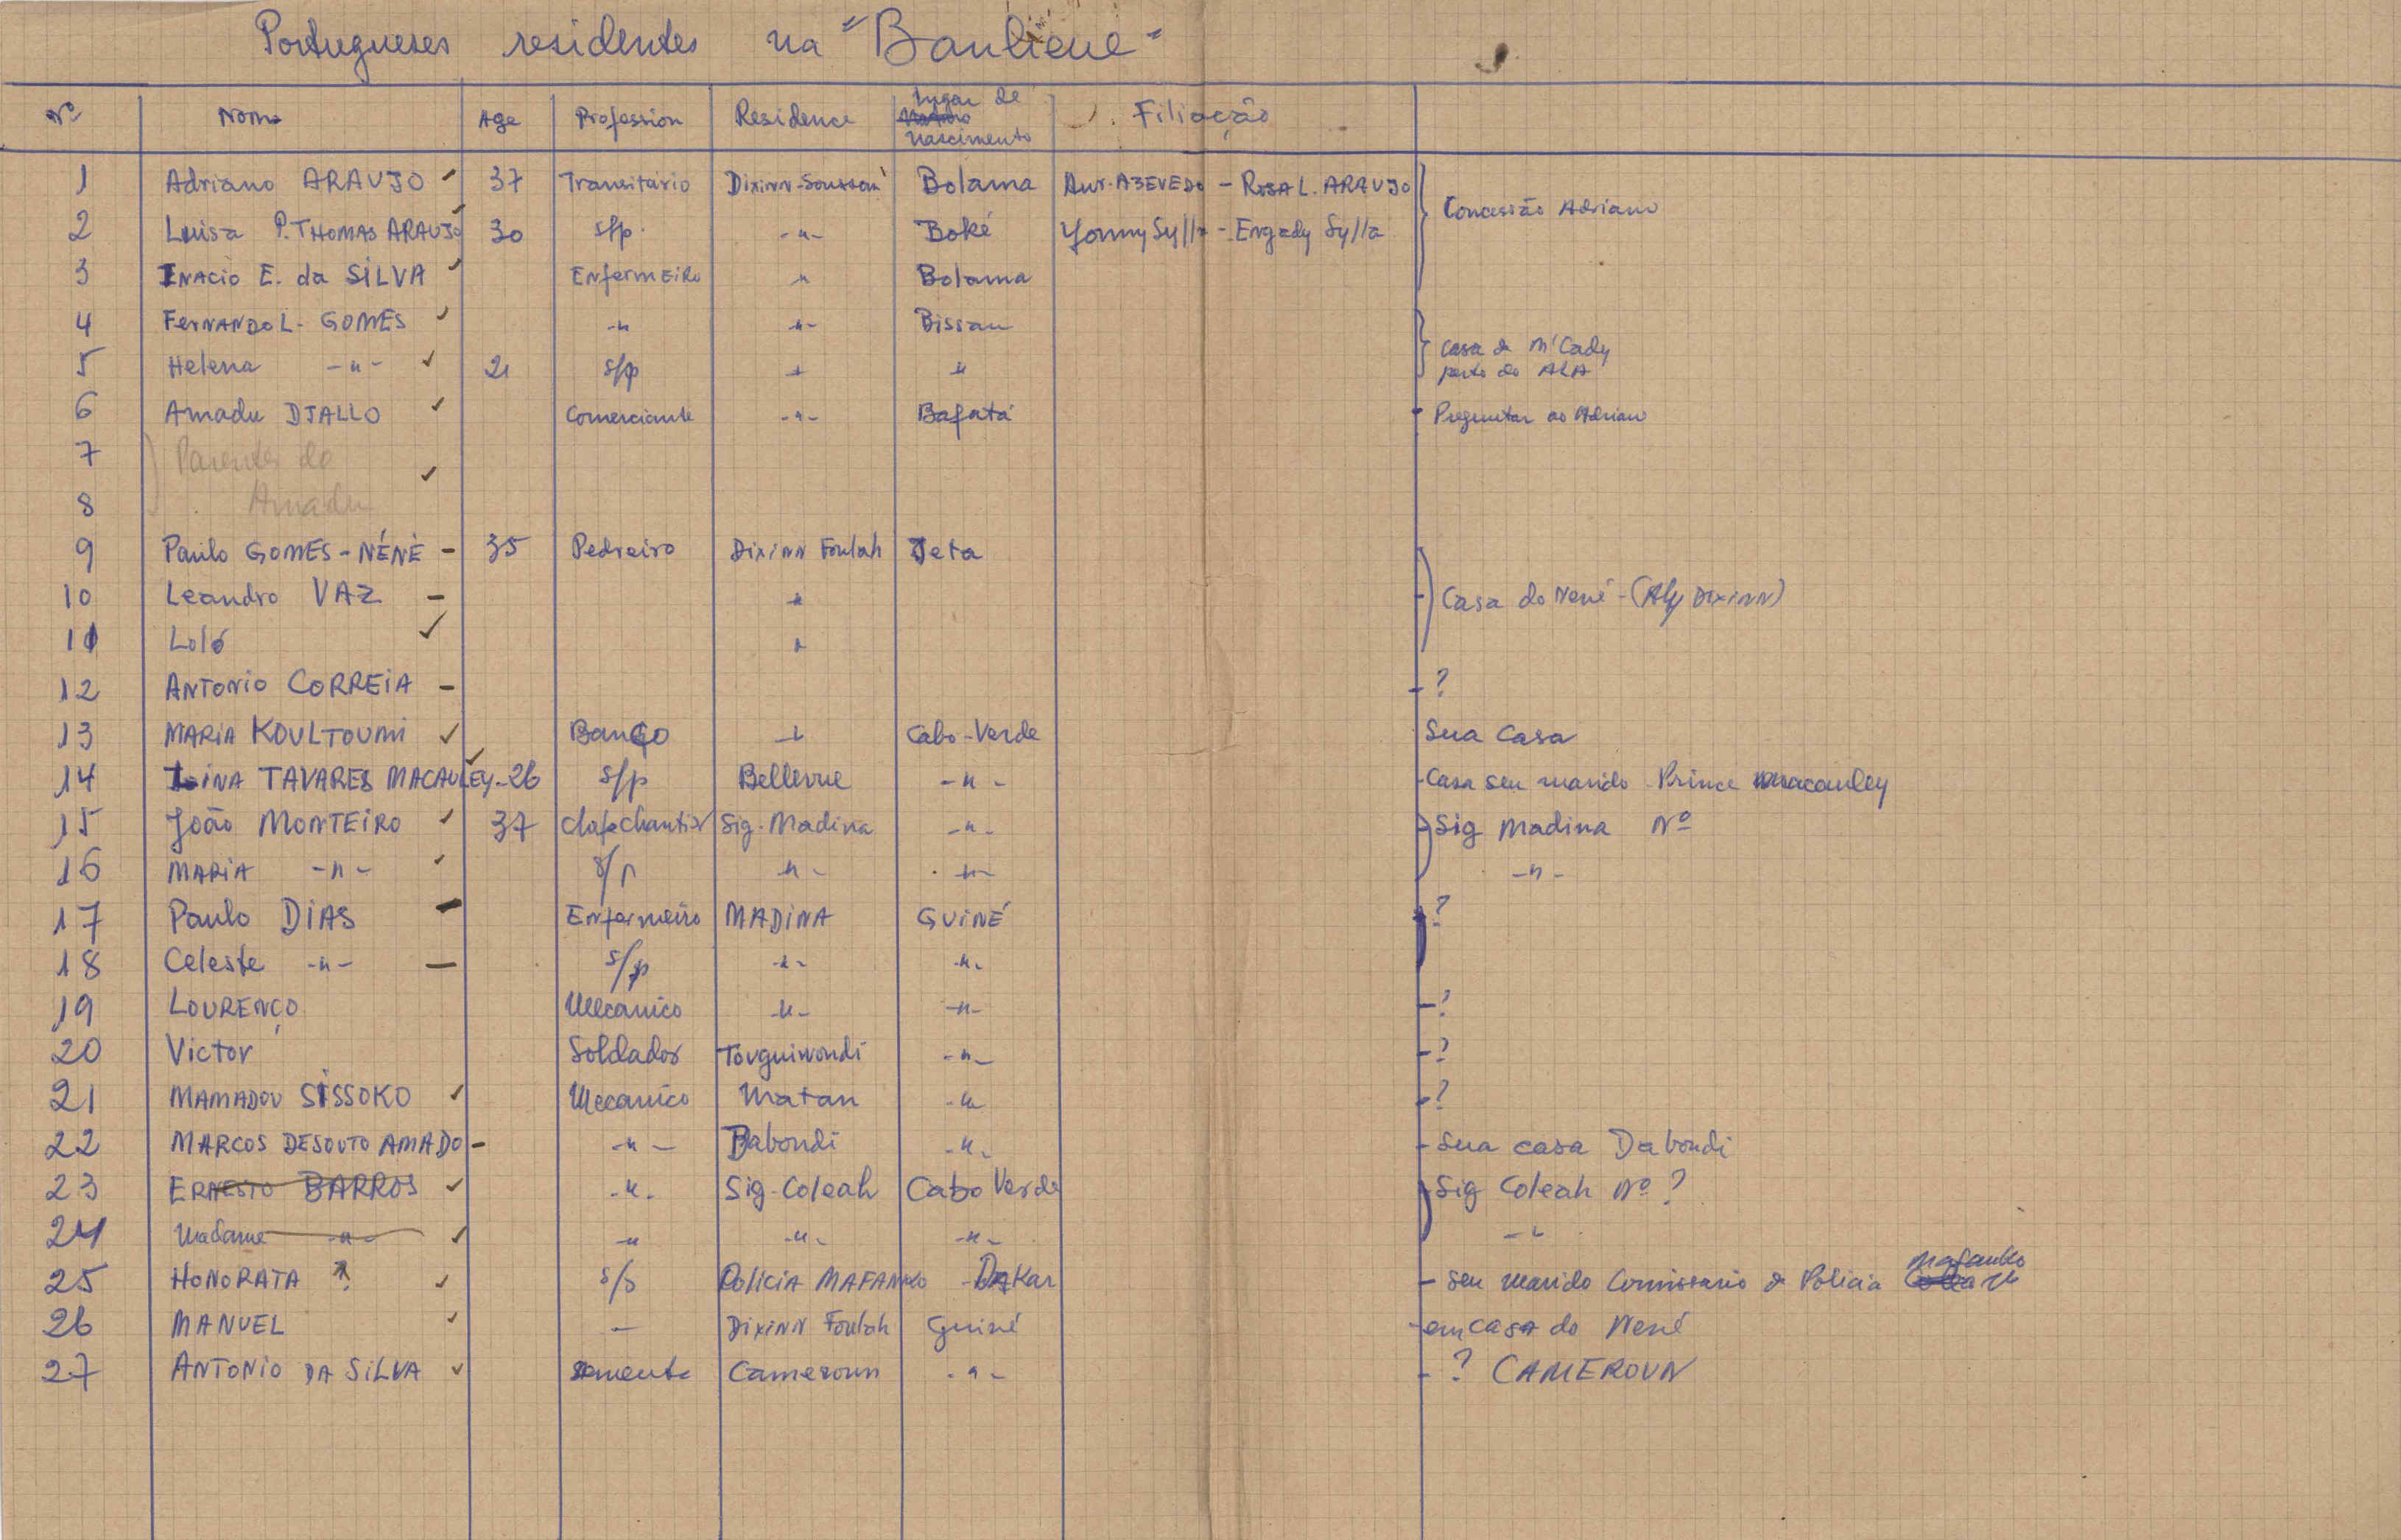 Portugueses residentes na "Banlieue"
Nº Nome Age Profession Residence lugar de nascimento Filiação
1 Adriano ARAUJO ✓ 37 Transitário Dixinn-Soussou Bolama Ant. AZEVEDO - ROSA L. ARAUJO Concessão Adriano
2 Luisa P. THOMAS ARAUJO ✓ 30 s/p. -"- Boké Yommy Sylla - Engady Sylla
3 INACIO E. da SILVA ✓ ENfermeiro " Bolama
4 FerNANDO L. GOMES ✓ -" -"- Bissau
5 Helena -"- ✓ 21 s/p " " casa de M'Cady perto do
6 Amadu DJALLO ✓ Comerciante -"- Bafatá - Preguntar ao Adriano
7 Parentes do ✓
8 Amadu
9 Paulo GOMES - NÉNÉ - 35 Pedreiro Dixinn Foulah Jeta
10 Leandro VAZ - " Casa do Nené - (Aly DIXINN)
11 Loló ✓ "
12 ANTONIO CORREIA - - ?
13 MARIA KOULTOUMI ✓ Banco " Cabo-Verde Sua Casa
14 TAVARES MACAULEY ✓ - 26 s/p Bellevue -"- - Casa seu marido Prince macauley
15 João MONTEIRO ✓ 37 Chantier Sig. Madina -"- Sig Madina Nº
16 MARIA -"- ✓ s/p "- -"- -"-
17 Paulo DIAS - Enfermeiro MADINA GUINÉ ?
18 Celeste -"- - s/p -"- -"-
19 LOURENÇO Mecanico -"- -"- - ?
20 Victor Soldador Touguiwondi -"- - ?
21 MAMADOU SISSOKO ✓ Mecanico Matam -" - ?
22 MARCOS DESOUTO AMADO - -"- Dabondi -"- - Sua casa Dabondi
23 ERNESTO BARROS ✓ -"- Sig-Coleah Cabo Verde Sig Coleah Nº ?
24 Madame -"- ✓ -" -"- -"- -"
25 HONORATA ? ✓ s/p POLICIA MAFANKO - DaKar - Seu marido Comissario de Policia Mafanko
26 MANUEL ✓ - DIXINN Foulah Guiné - em casa do Nené
27 ANTONIO DA SILVA ✓ Cameroun -"- - ? CAMEROUN